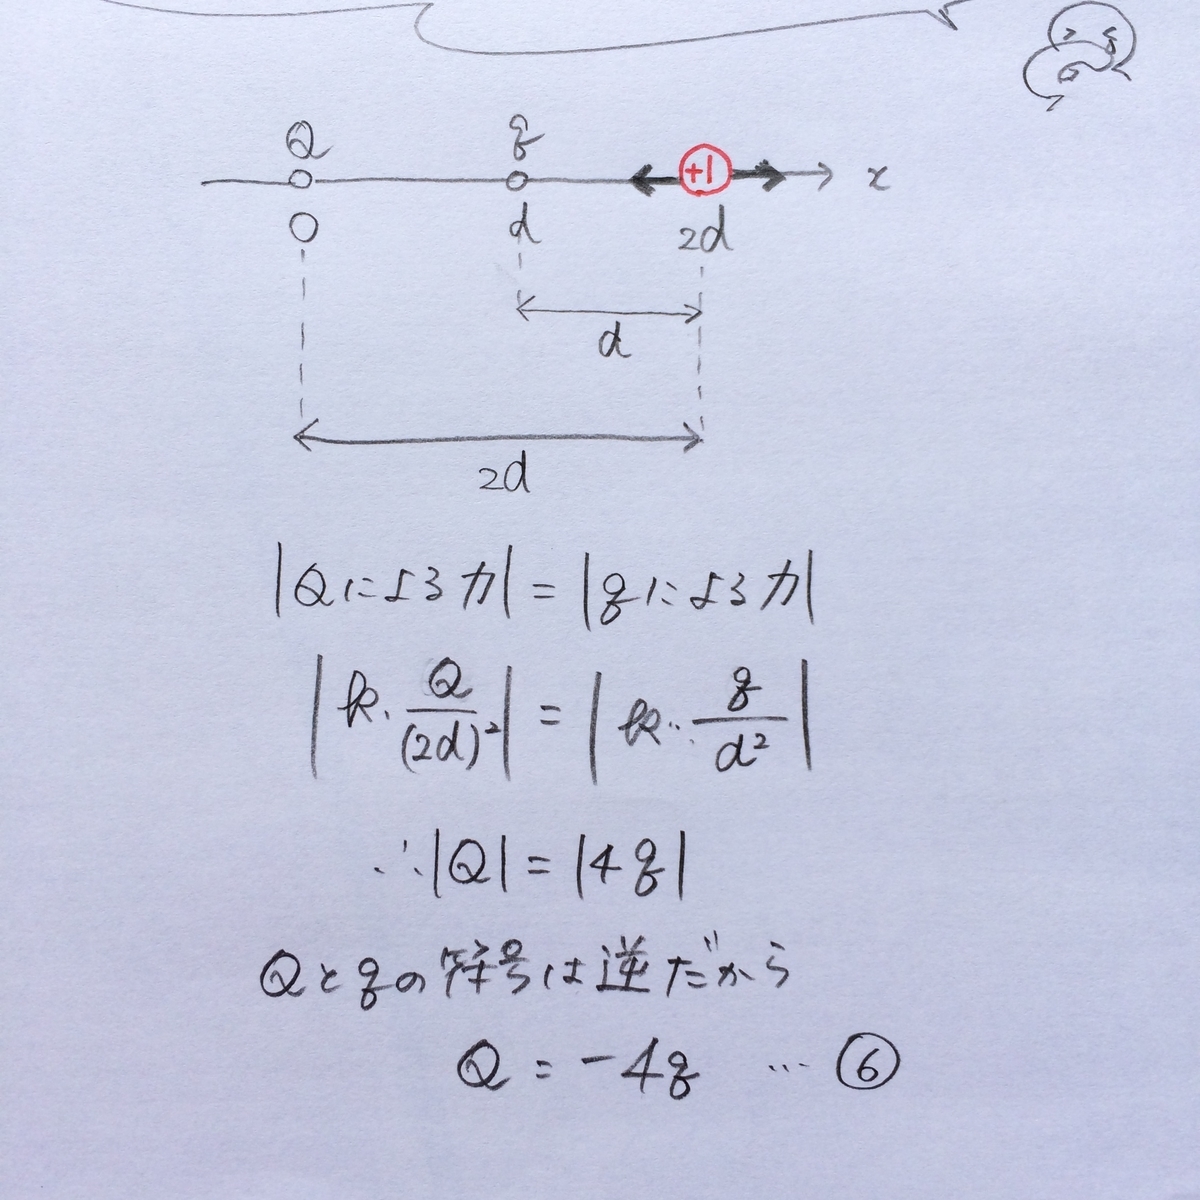 Q q
+1 x
O d 2d
d
2d
|Qによる力| = |qによる力|
|k・Q/(2d)²| = |k・q/d²|
∴|Q| = |4q|
Qとqの符号は逆だから
Q = -4q … ⑥